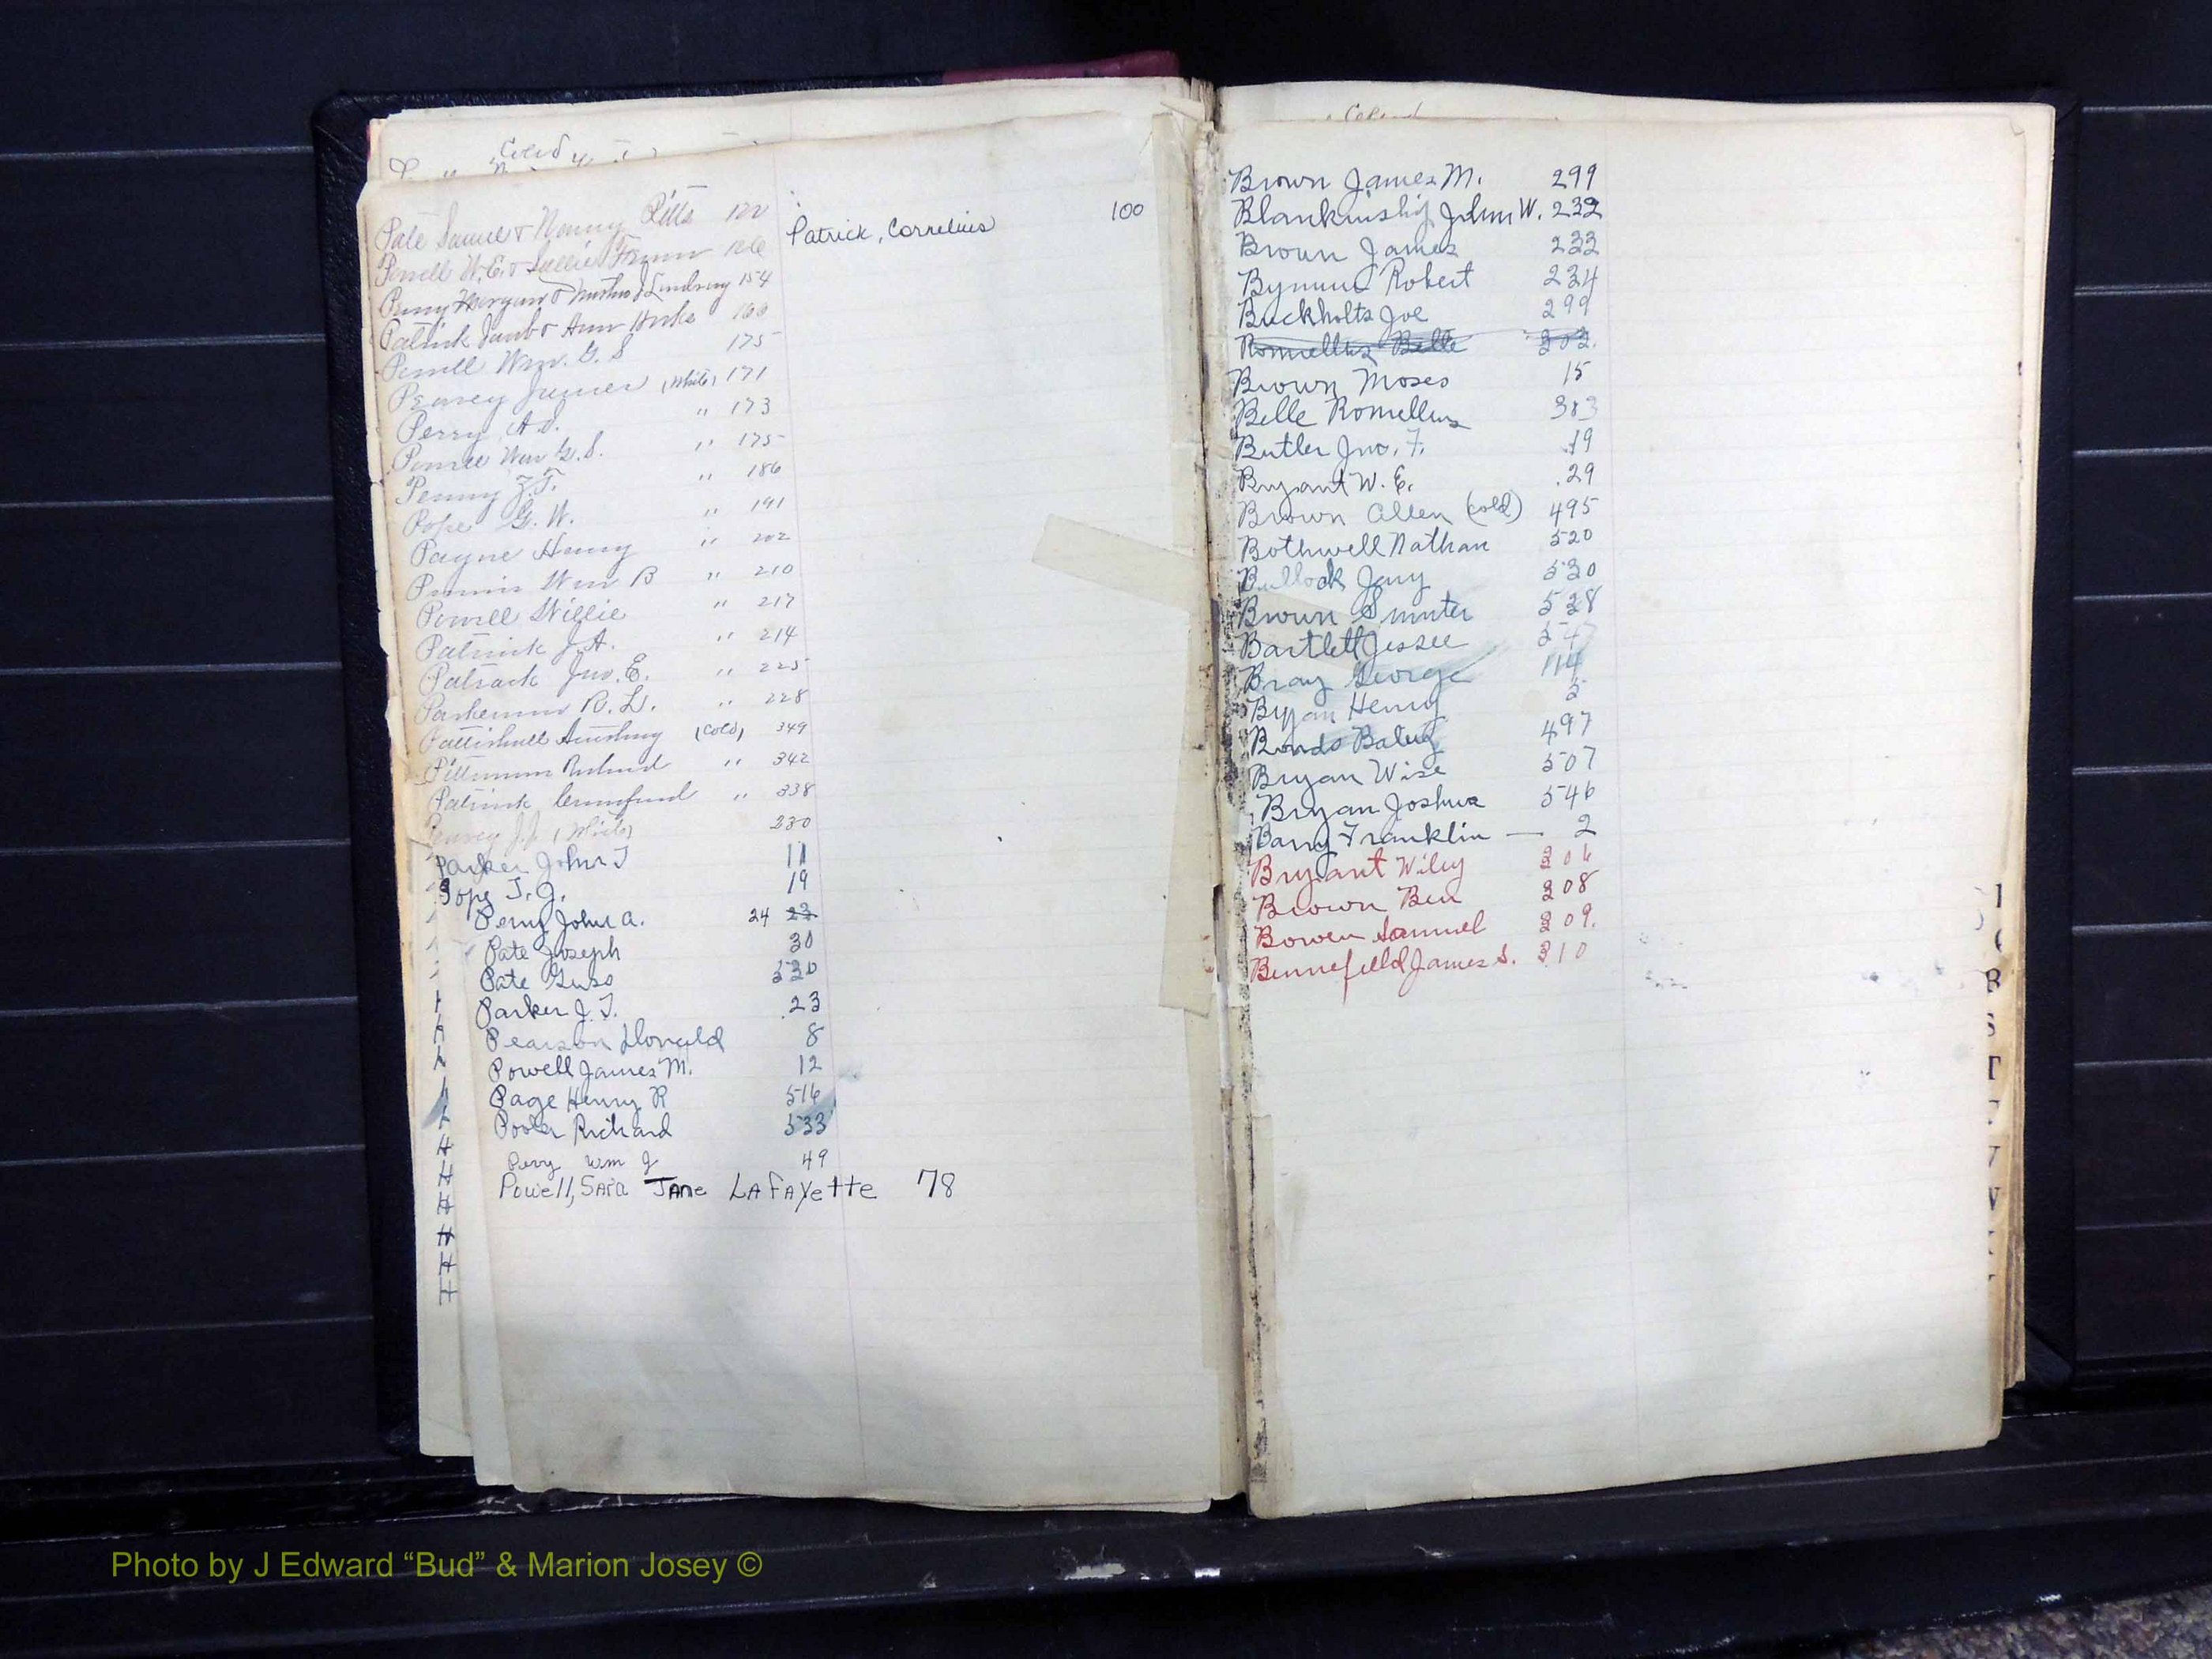 Cold
Pate Samuel & Nancy Pitts 122
Powell W.E. & Sallie 126
Penny & Lindsay 154
Patrick & Ann 160
Powell Wm. G. S 175
Pearcy James (White) 171
Perry A.S. " 173
Powell Wm G.S. " 175
Penny Z.T. " 186
Pope G.W. " 191
Payne Henry " 202
Wm B " 210
Powell Willie " 217
Patrick J.A. " 214
Patrack Jno. E. " 225
R.L. " 228
(Cold) 349
Pittman " 342
Patrick " 338
J.J. (White) 230
Parker John T 11
Pope T.J. 19
Perry John A. 24 23
Pate Joseph 30
Pate Guss 530
Parker J.T. 23
Pearson Donald 8
Powell James M. 12
Page Henry R 516
Richard 533
Perry Wm J 49
Powell, Sara Jane LAFAYette 78
Patrick, Cornelius 100
Brown James M. 299
Blankinship John W. 232
Brown James 233
Bynum Robert 234
Buckholts Joe 299
Romellus Belle 303.
Brown Moses 15
Belle Romellus 303
Butler Jno. F. 19
Bryant W. E. 29
Brown Allen (cold) 495
Bothwell Nathan 520
Bullock Jary 530
Brown Sumter 538
Bartlett Jessee
Bray George 114
Bryan Henry 5
Bonds 497
Bryan Wise 507
Bryan Joshua 546
Barry Franklin — 2
Bryant Wiley 306
Brown Ben 308
Bowen Samuel 309.
Bennefield James S. 310
H
H
H
H
H
H
R
S
T
V
W
Photo by J Edward “Bud” & Marion Josey ©